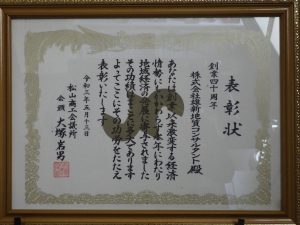 表彰状
創業四十周年
株式会社維新地質コンサルタント殿
あなたは創業以来激変する経済
情勢に
多年にわたり
地域経済の発展に
されました
その功績は
大であります
よってここにその功労をたたえ
表彰いたします
令和三年五月十三日
松山商工会議所
会頭 大塚岩男